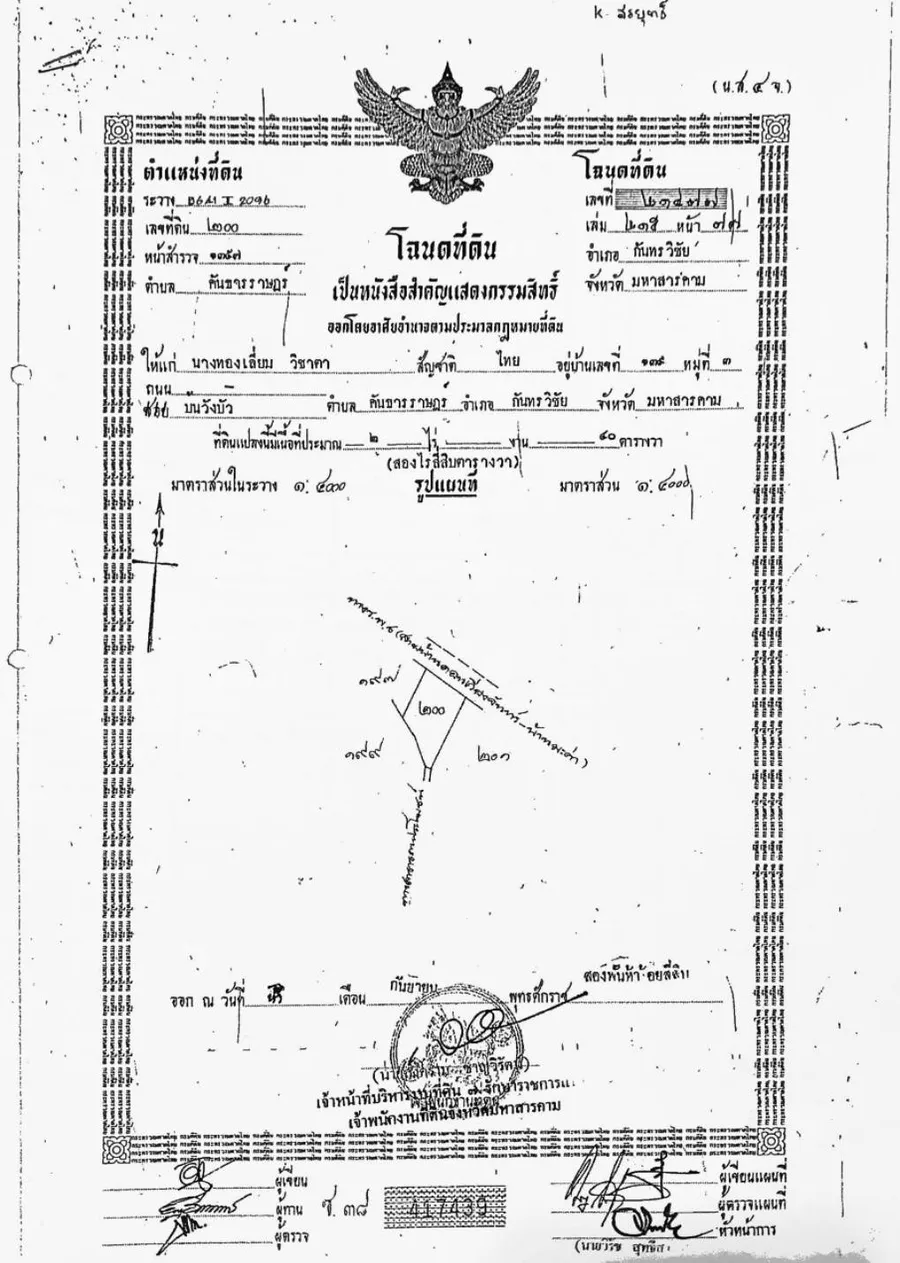 k. สรยุทธ์
(น.ส.๔ จ.)
ตำแหน่งที่ดิน
ระวาง
เลขที่ดิน ๒๐๐
หน้าสำรวจ ๑๓๙๗
ตำบล คันธารราษฎร์
โฉนดที่ดิน
เลขที่ ๒๑๔๗๗
เล่ม ๒๑๕ หน้า ๗๗
อำเภอ กันทรวิชัย
จังหวัด มหาสารคาม
โฉนดที่ดิน
เป็นหนังสือสำคัญแสดงกรรมสิทธิ์
ออกโดยอาศัยอำนาจตามประมวลกฎหมายที่ดิน
ให้แก่ นางทองเลี่ยม วิชาคา สัญชาติ ไทย อยู่บ้านเลขที่ ๑๓๙ หมู่ที่ ๓
ถนน
ซอย บ้นวังบัว ตำบล คันธารราษฎร์ อำเภอ กันทรวิชัย จังหวัด มหาสารคาม
ที่ดินแปลงนี้มีเนื้อที่ประมาณ ๒ ไร่ งาน ๔๐ ตารางวา
(สองไร่สี่สิบตารางวา)
มาตราส่วนในระวาง ๑:๔๐๐๐ รูปแผนที่ มาตราส่วน ๑:๔๐๐๐
น
๑๙๗
๒๐๐
๑๙๙
๒๐๑
ทางสาธารณประโยชน์
ออก ณ วันที่ เดือน กันยายน พุทธศักราช สองพันห้าร้อยสี่สิบ
เจ้าหน้าที่บริหารงานที่ดิน ๗ รักษาราชการแ
เจ้าพนักงานที่ดินจังหวัดมหาสารคาม
ผู้เขียน
ผู้ทาน
ผู้ตรวจ
ช. ๓๘ 417439
ผู้เขียนแผนที่
ผู้ตรวจแผนที่
หัวหน้าการ